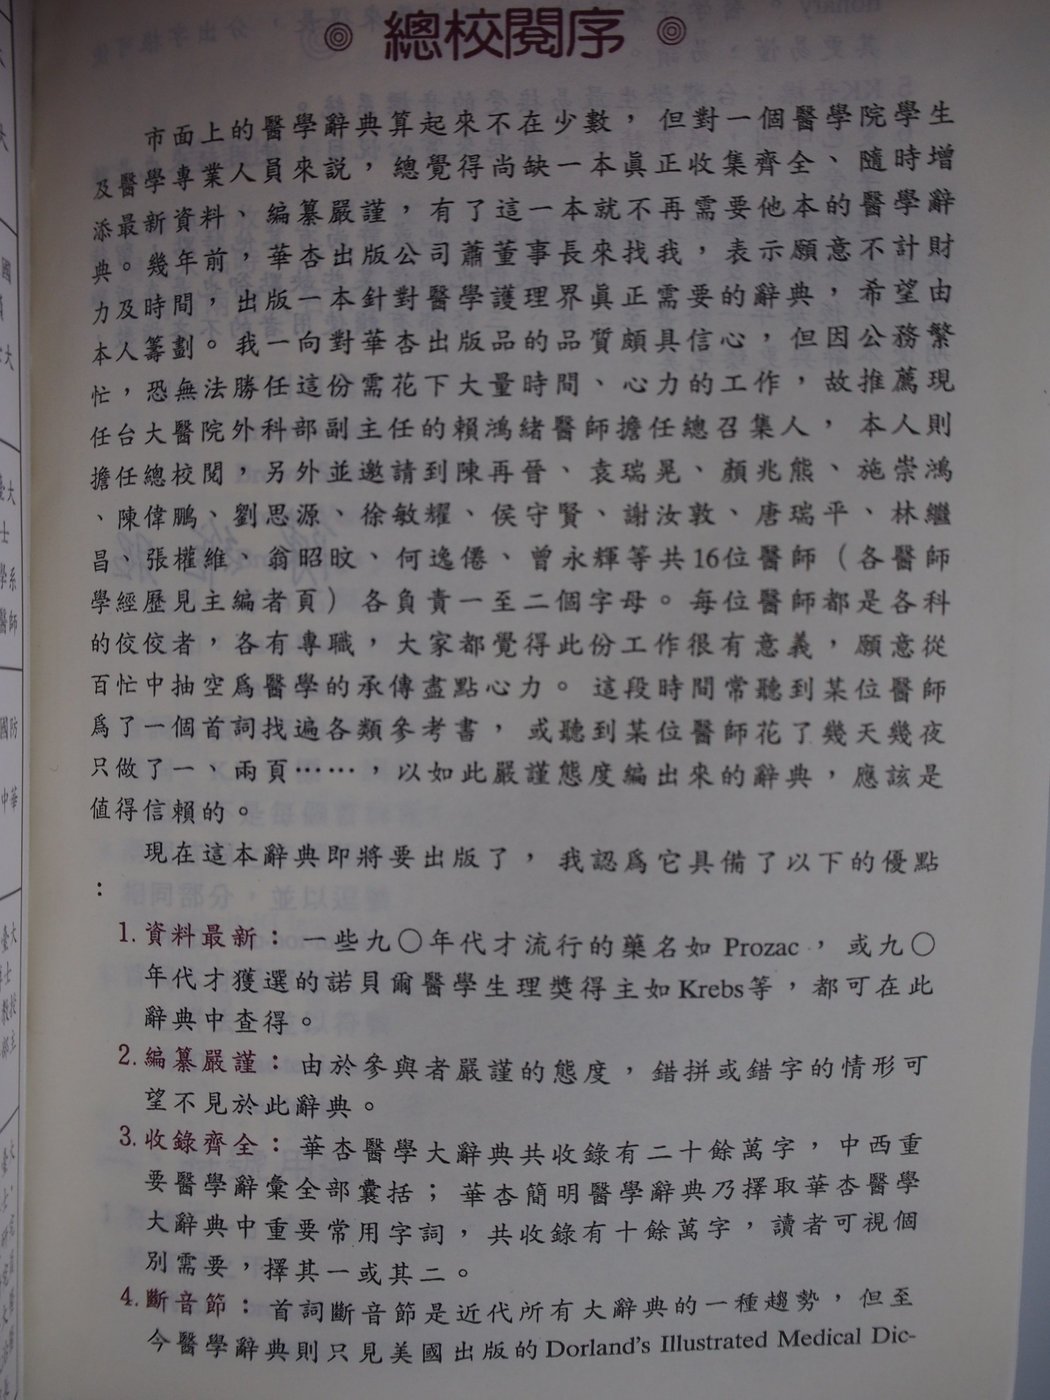 ◎ 總校閱序 ◎
市面上的醫學辭典算起來不在少數，但對一個醫學院學生
及醫學專業人員來說，總覺得尚缺一本眞正收集齊全、隨時增
添最新資料、編纂嚴謹，有了這一本就不再需要他本的醫學辭
典。幾年前，華杏出版公司蕭董事長來找我，表示願意不計財
力及時間，出版一本針對醫學護理界眞正需要的辭典，希望由
本人籌劃。我一向對華杏出版品的品質頗具信心，但因公務繁
忙，恐無法勝任這份需花下大量時間、心力的工作，故推薦現
任台大醫院外科部副主任的賴鴻緒醫師擔任總召集人，本人則
擔任總校閱，另外並邀請到陳再晉、袁瑞晃、顏兆熊、施崇鴻
、陳偉鵬、劉思源、徐敏耀、侯守賢、謝汝敦、唐瑞平、林繼
昌、張權維、翁昭旼、何逸僊、曾永輝等共16位醫師（各醫師
學經歷見主編者頁）各負責一至二個字母。每位醫師都是各科
的佼佼者，各有專職，大家都覺得此份工作很有意義，願意從
百忙中抽空爲醫學的承傳盡點心力。這段時間常聽到某位醫師
爲了一個首詞找遍各類參考書，或聽到某位醫師花了幾天幾夜
只做了一、兩頁……，以如此嚴謹態度編出來的辭典，應該是
值得信賴的。
現在這本辭典即將要出版了，我認爲它具備了以下的優點
：
1.資料最新：一些九〇年代才流行的藥名如 Prozac，或九〇
年代才獲選的諾貝爾醫學生理獎得主如 Krebs等，都可在此
辭典中查得。
2.編纂嚴謹：由於參與者嚴謹的態度，錯拼或錯字的情形可
望不見於此辭典。
3.收錄齊全：華杏醫學大辭典共收錄有二十餘萬字，中西重
要醫學辭彙全部囊括；華杏簡明醫學辭典乃擇取華杏醫學
大辭典中重要常用字詞，共收錄有十餘萬字，讀者可視個
別需要，擇其一或其二。
4.斷音節：首詞斷音節是近代所有大辭典的一種趨勢，但至
今醫學辭典則只見美國出版的 Dorland's Illustrated Medical Dic-